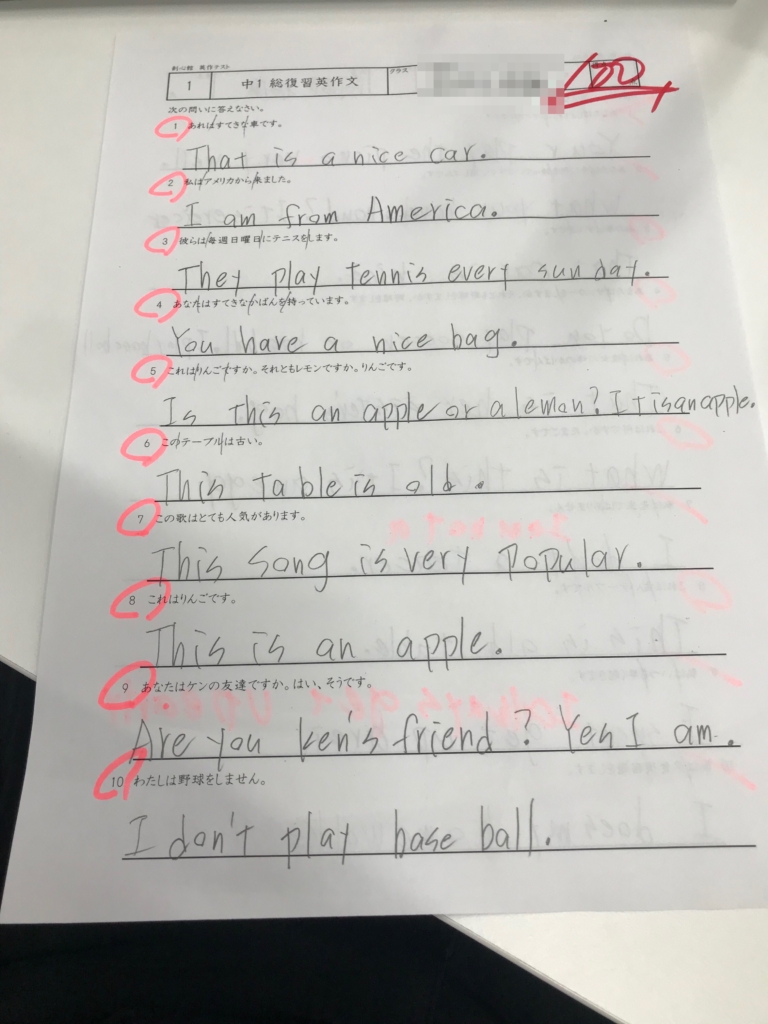 剣心館 英作テスト
1 中1総復習英作文 クラス 100
次の問いに答えなさい。
1 あれはすてきな車です。
That is a nice car.
2 私はアメリカから来ました。
I am from America.
3 彼らは毎週日曜日にテニスをします。
They play tennis every sun day.
4 あなたはすてきなかばんを持っています。
You have a nice bag.
5 これはりんごですか。それともレモンですか。りんごです。
Is this an apple or a leman? It is an apple.
6 このテーブルは古い。
This table is old.
7 この歌はとても人気があります。
This song is very popular.
8 これはりんごです。
This is an apple.
9 あなたはケンの友達ですか。はい、そうです。
Are you ken's friend? Yes I am.
10 わたしは野球をしません。
I don't play base ball.